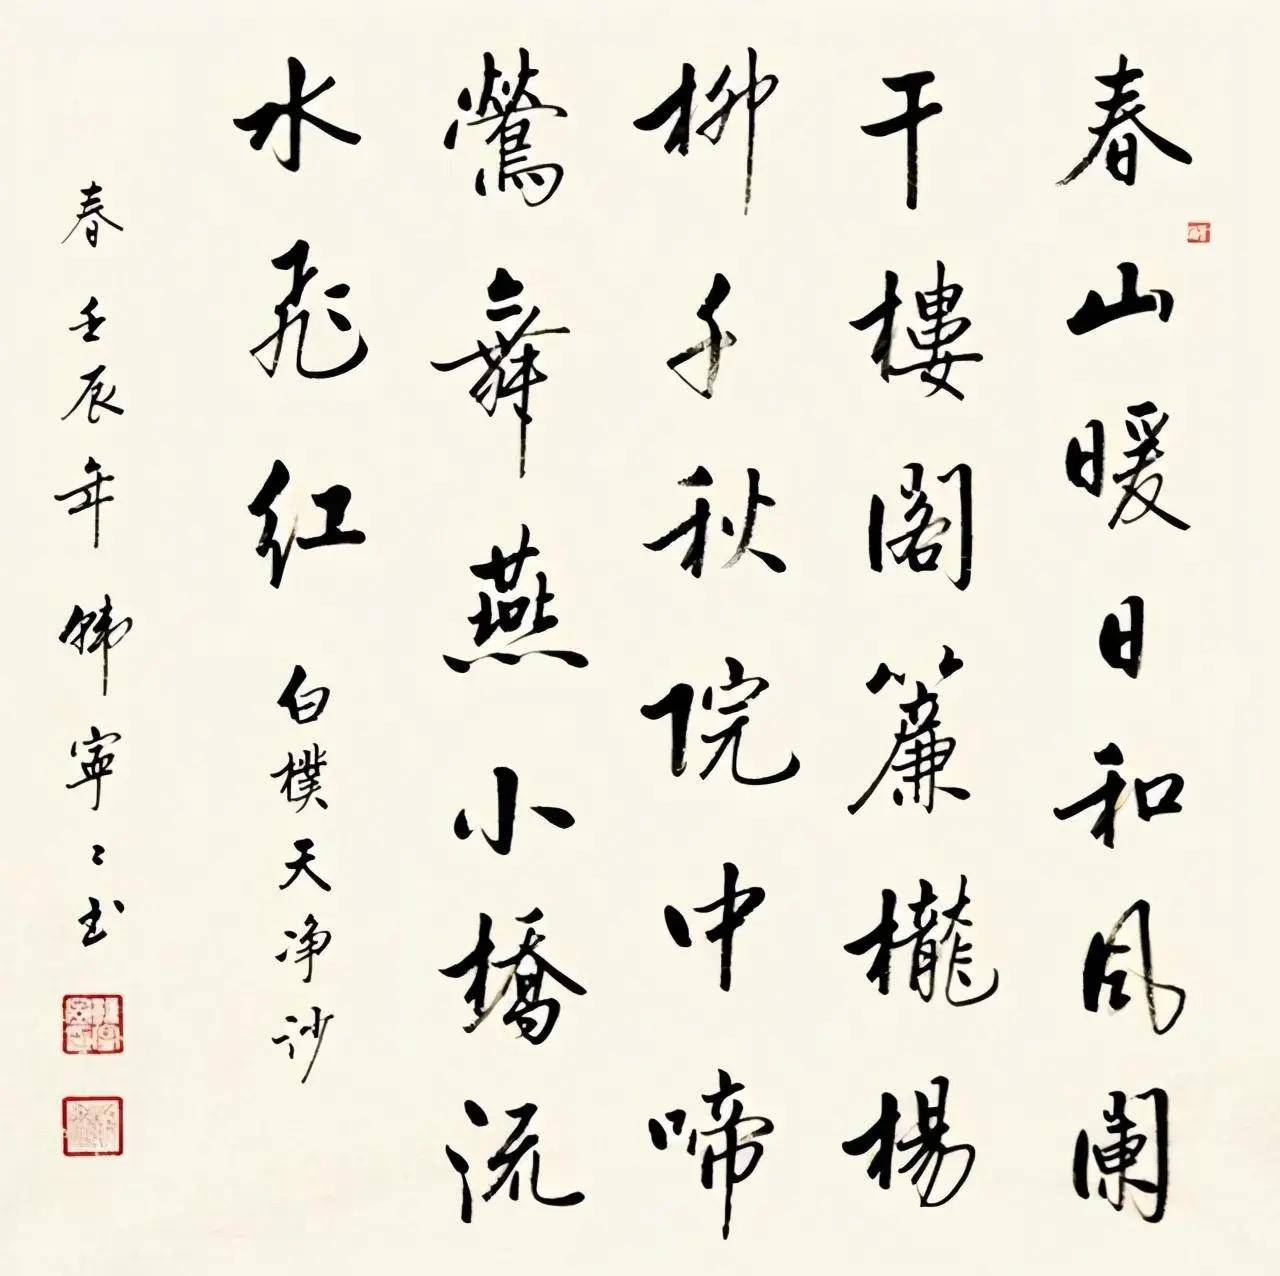 春山暖日和风阑
干樓阁簾櫳楊
柳千秋院中啼
鶯舞燕小橋流
水飛红
白樸天净沙
春壬辰年韩寧〻书